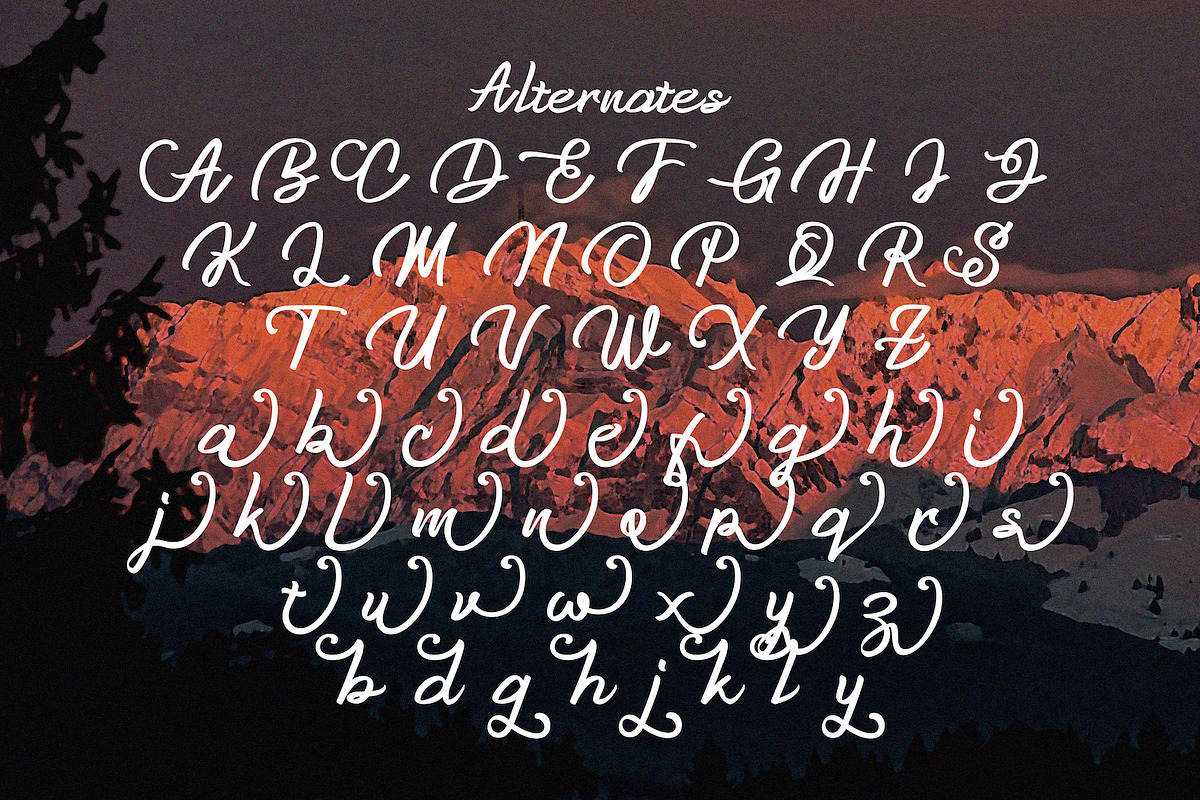 Alternates
A B C D E F G H I J
K L M N O P Q R S
T U V W X Y Z
a b c d e f g h i
j k l m n o p q r s
t u v w x y z
b d g h j k l y